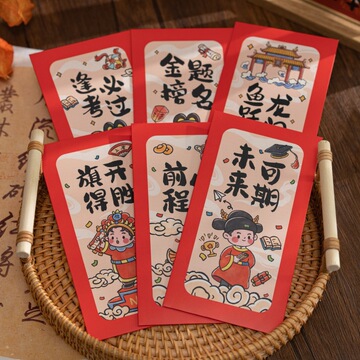 逢考
必过
金榜
题名
鱼跃
龙
旗开
得胜
前
程
未来
可期